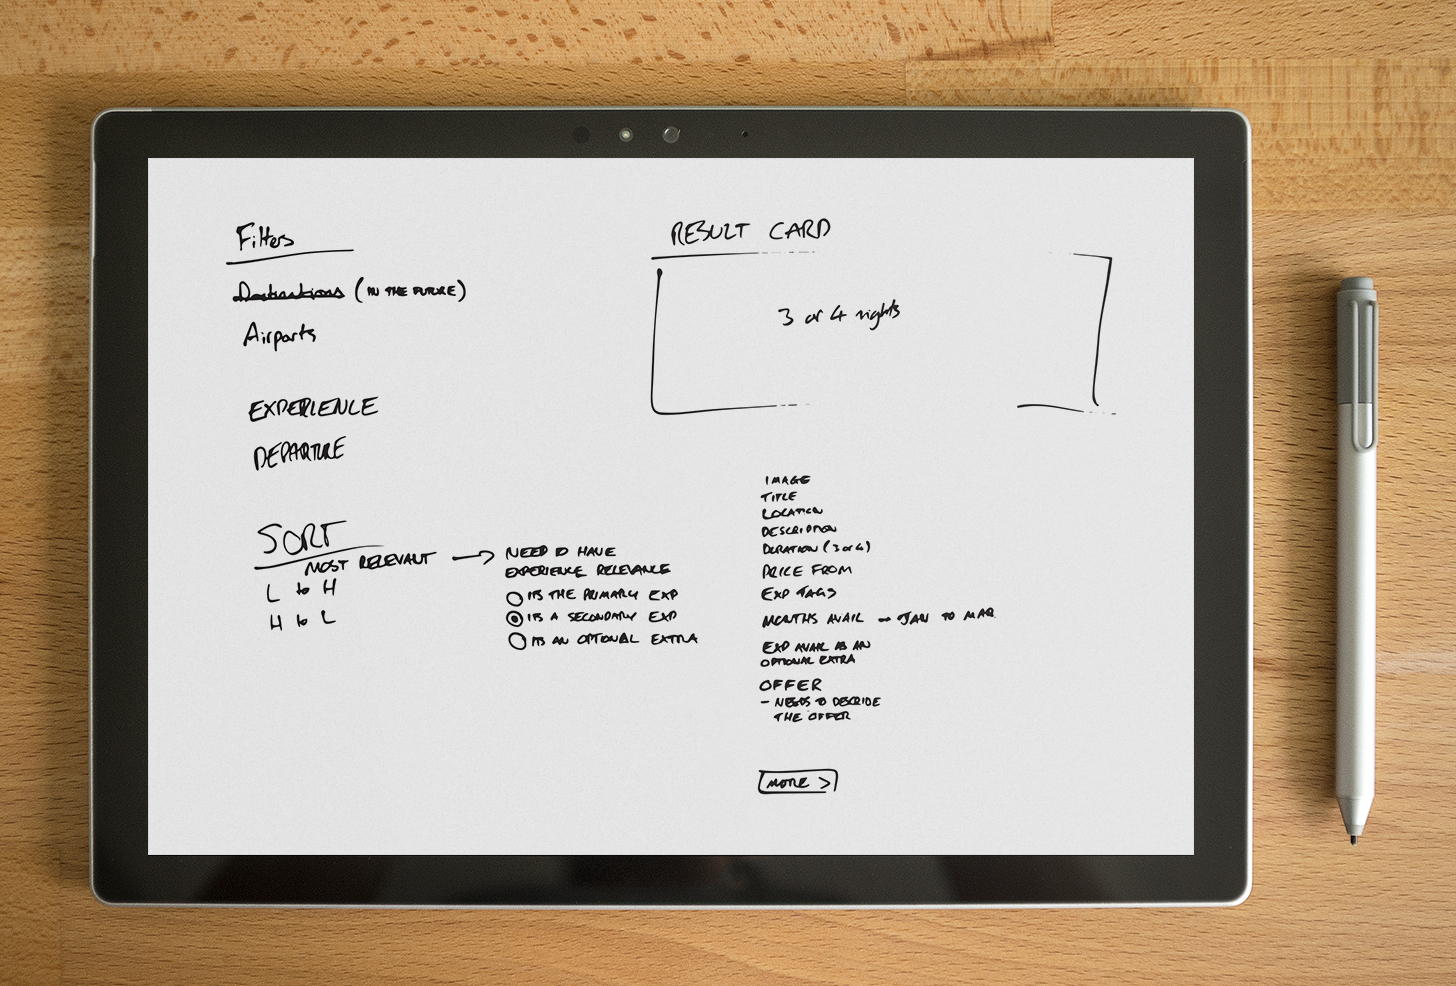 Filters
Destinations (IN THE FUTURE)
Airports
EXPERIENCE
DEPARTURE
SORT
MOST RELEVANT → NEED TO HAVE
EXPERIENCE RELEVANCE
L to H
H to L
ITS THE PRIMARY EXP
ITS A SECONDARY EXP
ITS AN OPTIONAL EXTRA
RESULT CARD
3 or 4 nights
IMAGE
TITLE
LOCATION
DESCRIPTION
DURATION (3 or 4)
PRICE FROM
EXP TAGS
MONTHS AVAIL – JAN TO MAR
EXP AVAIL AS AN
OPTIONAL EXTRA
OFFER
– NEEDS TO DESCRIDE
THE OFFER
MORE >